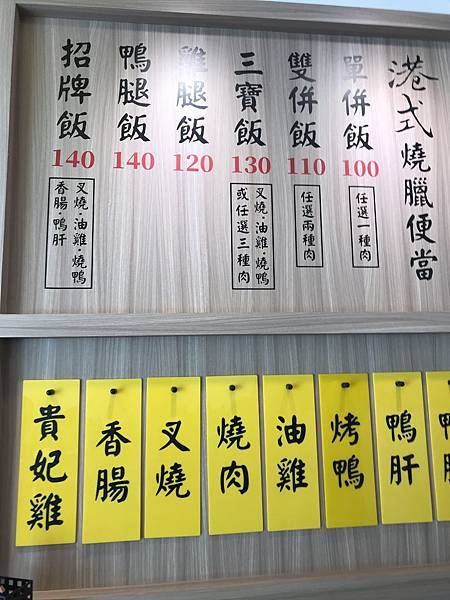 港式燒臘便當
單併飯
100
任選一種肉
雙併飯
110
任選兩種肉
三寶飯
130
叉燒·油雞·燒鴨
或任選三種肉
雞腿飯
120
鴨腿飯
140
招牌飯
140
叉燒·油雞·燒鴨
香腸·鴨肝
鴨
鴨肝
烤鴨
油雞
燒肉
叉燒
香腸
貴妃雞